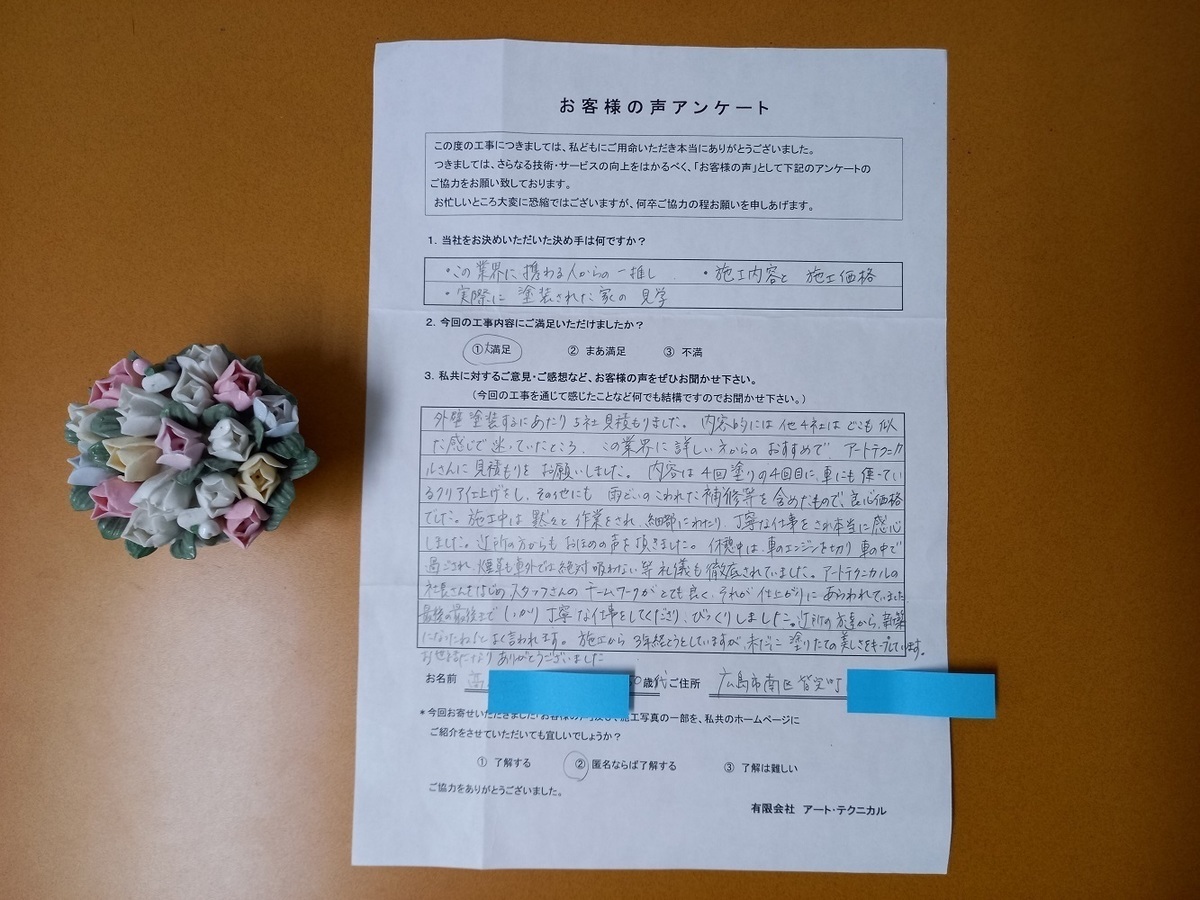 お客様の声アンケート
この度の工事につきましては、私どもにご用命いただき本当にありがとうございました。
つきましては、さらなる技術・サービスの向上をはかるべく、「お客様の声」として下記のアンケートの
ご協力をお願い致しております。
お忙しいところ大変に恐縮ではございますが、何卒ご協力の程お願いを申しあげます。
1. 当社をお決めいただいた決め手は何ですか？
・この業界に携わる人からの一推し ・施工内容と施工価格
・実際に塗装された家の見学
2. 今回の工事内容にご満足いただけましたか？
① 大満足 ② まあ満足 ③ 不満
3. 私共に対するご意見・ご感想など、お客様の声をぜひお聞かせ下さい。
（今回の工事を通じて感じたことなど何でも結構ですのでお聞かせ下さい。）
外壁塗装するにあたり5社見積もりました。内容的には他4社はどこも似
た感じで迷っていたところ、この業界に詳しい方からのおすすめで、アートテクニカ
ルさんに見積もりをお願いしました。内容は4回塗りの4回目に、車にも使ってい
るクリア仕上げをし、その他にも雨どいのこわれた補修等を含めたもので、良心価格
でした。施工中は黙々と作業をされ、細部にわたり、丁寧な仕事をされ本当に感心
しました。近所の方からもおほめの声を頂きました。休憩中は、車のエンジンを切り車の中で
過ごされ、煙草も車外では絶対吸わない等礼儀も徹底されていました。アートテクニカルの
社長さんをはじめ、スタッフさんのチームワークがとても良く、それが仕上がりにあらわれていました
最後の最後までしっかり丁寧な仕事をしてくださり、びっくりしました。近所の方達から、新築
になったね！とよく言われます。施工から3年経とうとしていますが、未だに塗りたての美しさをキープしています。
お世話になりありがとうございました
お名前 0歳代 ご住所 広島市南区皆実町
*今回お寄せいただきました「お客様の声」及び、施工写真の一部を、私共のホームページに
ご紹介をさせていただいても宜しいでしょうか？
① 了解する ② 匿名ならば了解する ③ 了解は難しい
ご協力をありがとうございました。
有限会社 アート・テクニカル